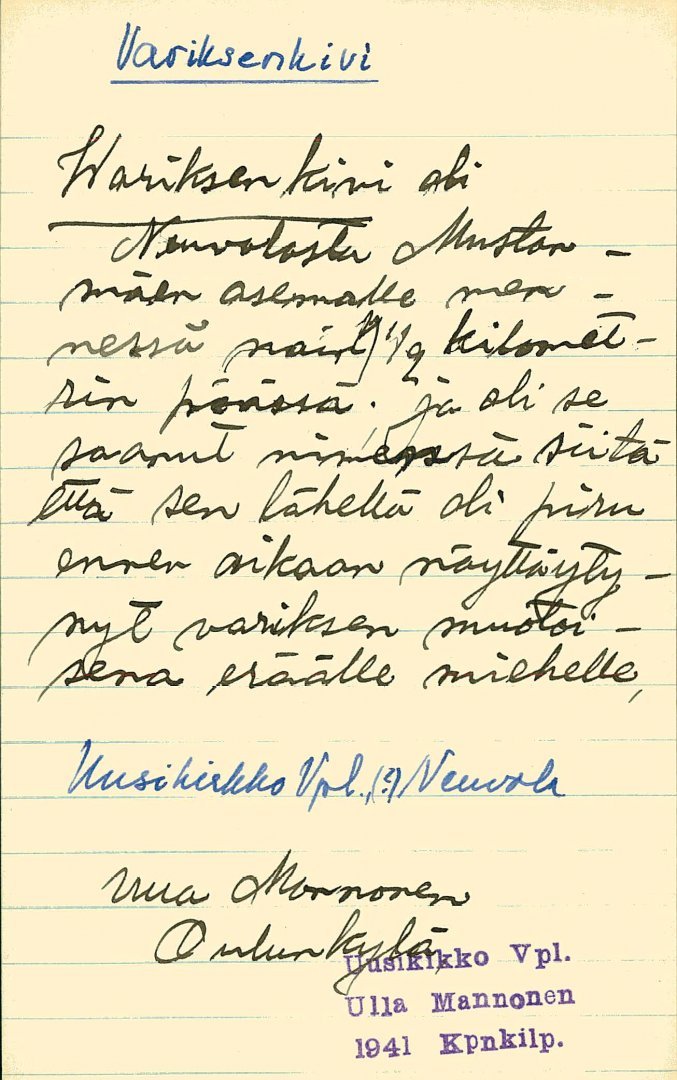 Variksenkivi
Wariksen kivi oli
Neuvolasta Mustan-
mäen asemalle men-
nessä noin 1/2 kilomet-
rin päässä. ja oli se
saanut nimensä siitä
että sen lähellä oli piru
ennen aikaan näyttäyty-
nyt variksen muotoi-
sena eräälle miehelle,
Uusikirkko Vpl., (?) Neuvola
Ulla Mannonen
Oulunkylä
Uusikikko Vpl.
Ulla Mannonen
1941 Kpnkilp.